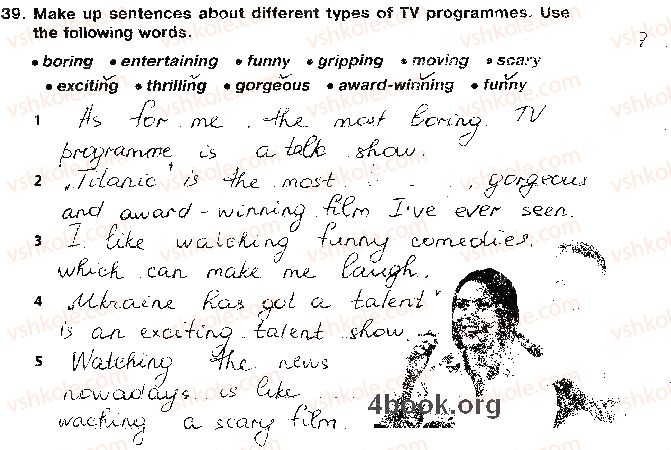 39. Make up sentences about different types of TV programmes. Use
the following words.
• boring • entertaining • funny • gripping • moving • scary
• exciting • thrilling • gorgeous • award-winning • funny
1 As for me, the most boring TV
programme is a talk show.
2 „Titanic" is the most gorgeous
and award-winning film I've ever seen.
3 I like watching funny comedies,
which can make me laugh.
4 „Ukraine has got a talent"
is an exciting talent show.
5 Watching the news
nowadays is like
waching a scary film.
4book.org
vshkole.com